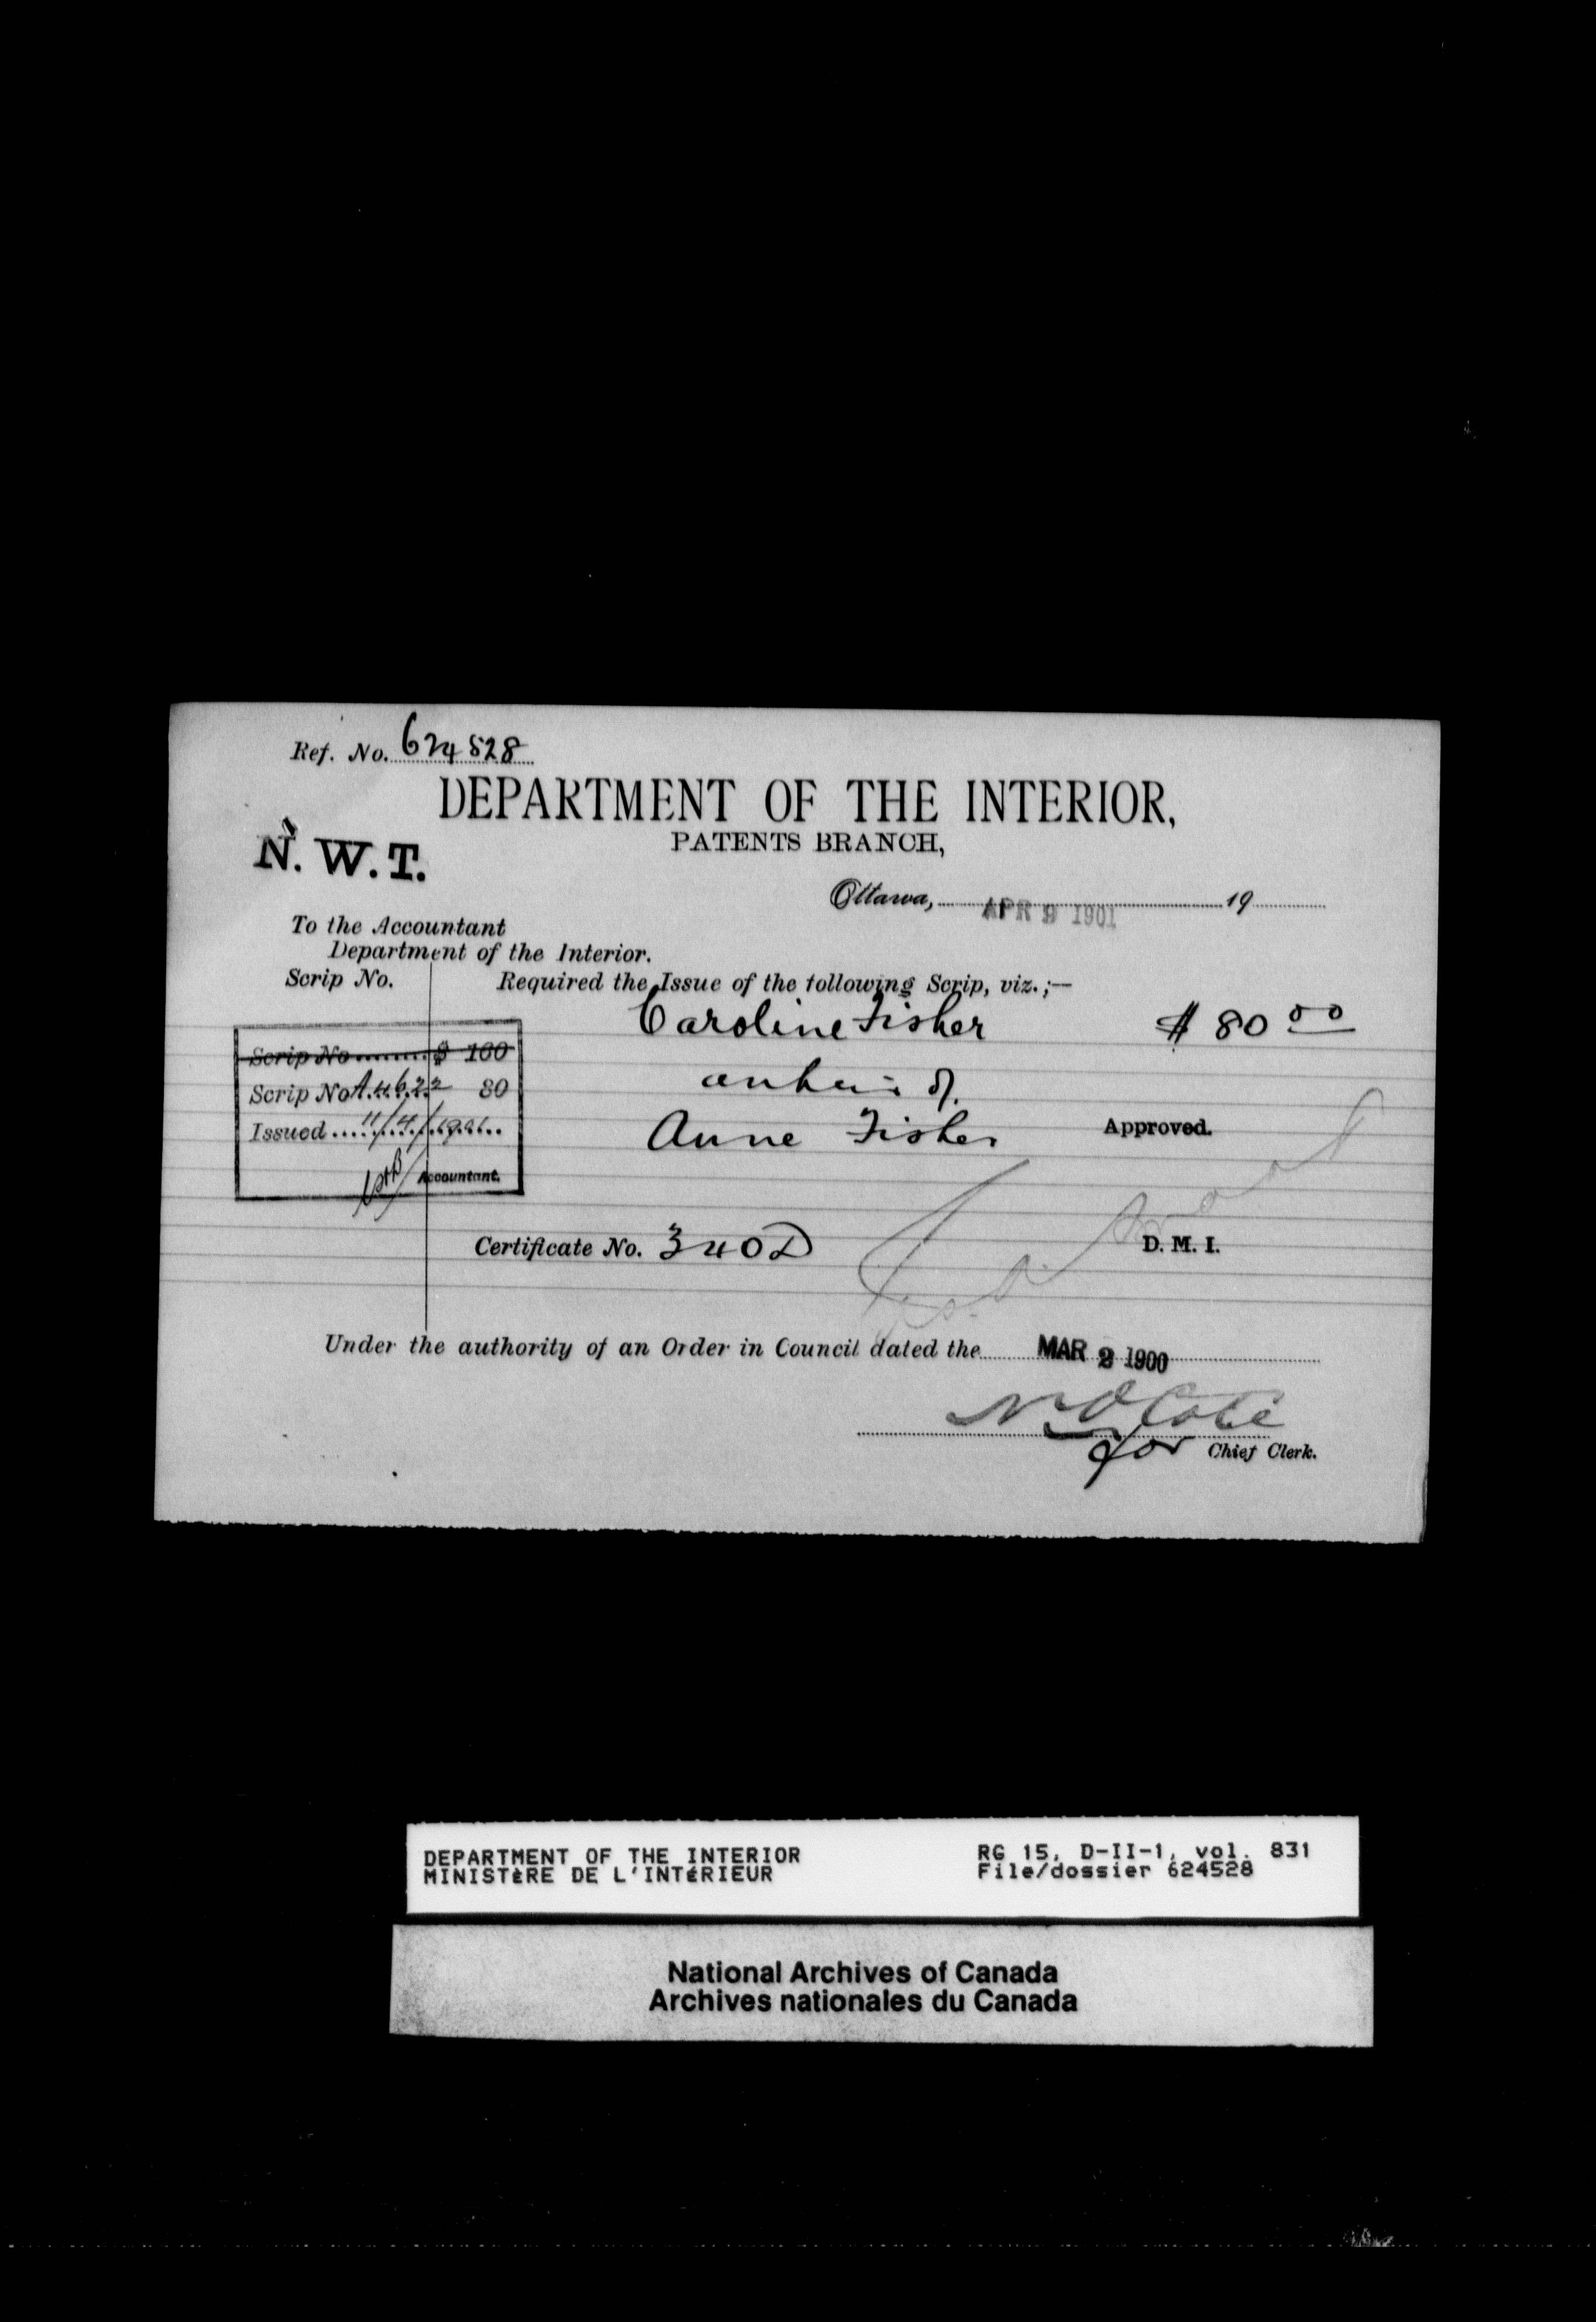 Ref. No. 624528
DEPARTMENT OF THE INTERIOR,
PATENTS BRANCH,
N. W. T.
Ottawa, APR 9 1901 19
To the Accountant
Department of the Interior.
Scrip No. Required the Issue of the following Scrip, viz.;—
Caroline Fisher $ 80 00
Scrip No. $ 100
an heir of
Scrip No A4622 80
Anne Fisher Approved.
Issued 11/4/1901
Accountant.
Certificate No. 340D D. M. I.
Under the authority of an Order in Council dated the MAR 2 1900
N O Coté
for Chief Clerk.
DEPARTMENT OF THE INTERIOR RG 15, D-II-1, vol. 831
MINISTÈRE DE L'INTÉRIEUR File/dossier 624528
National Archives of Canada
Archives nationales du Canada